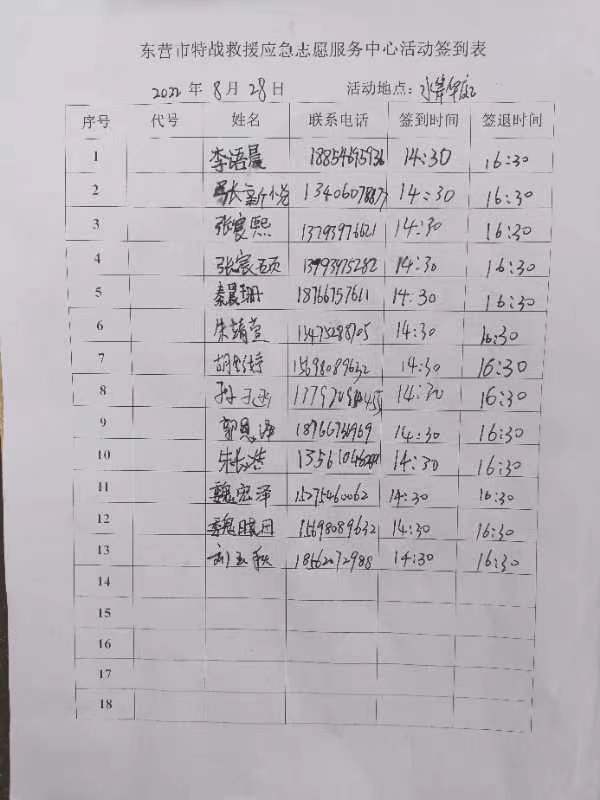 东营市特战救援应急志愿服务中心活动签到表
2022 年 8 月 28 日 活动地点：
序号 代号 姓名 联系电话 签到时间 签退时间
1 李语晨 14:30 16:30
2 张新悦 14:30 16:30
3 张宸熙 13793976621 14:30 16:30
4 14:30 16:30
5 秦晨珊 18766757611 14:30 16:30
6 朱靖萱 14:30 16:30
7 15698089632 14:30 16:30
8 14:30 16:30
9 14:30 16:30
10 14:30 16:30
11 魏宏泽 15275460062 14:30 16:30
12 15698089632 14:30 16:30
13 18562072988 14:30 16:30
14
15
16
17
18